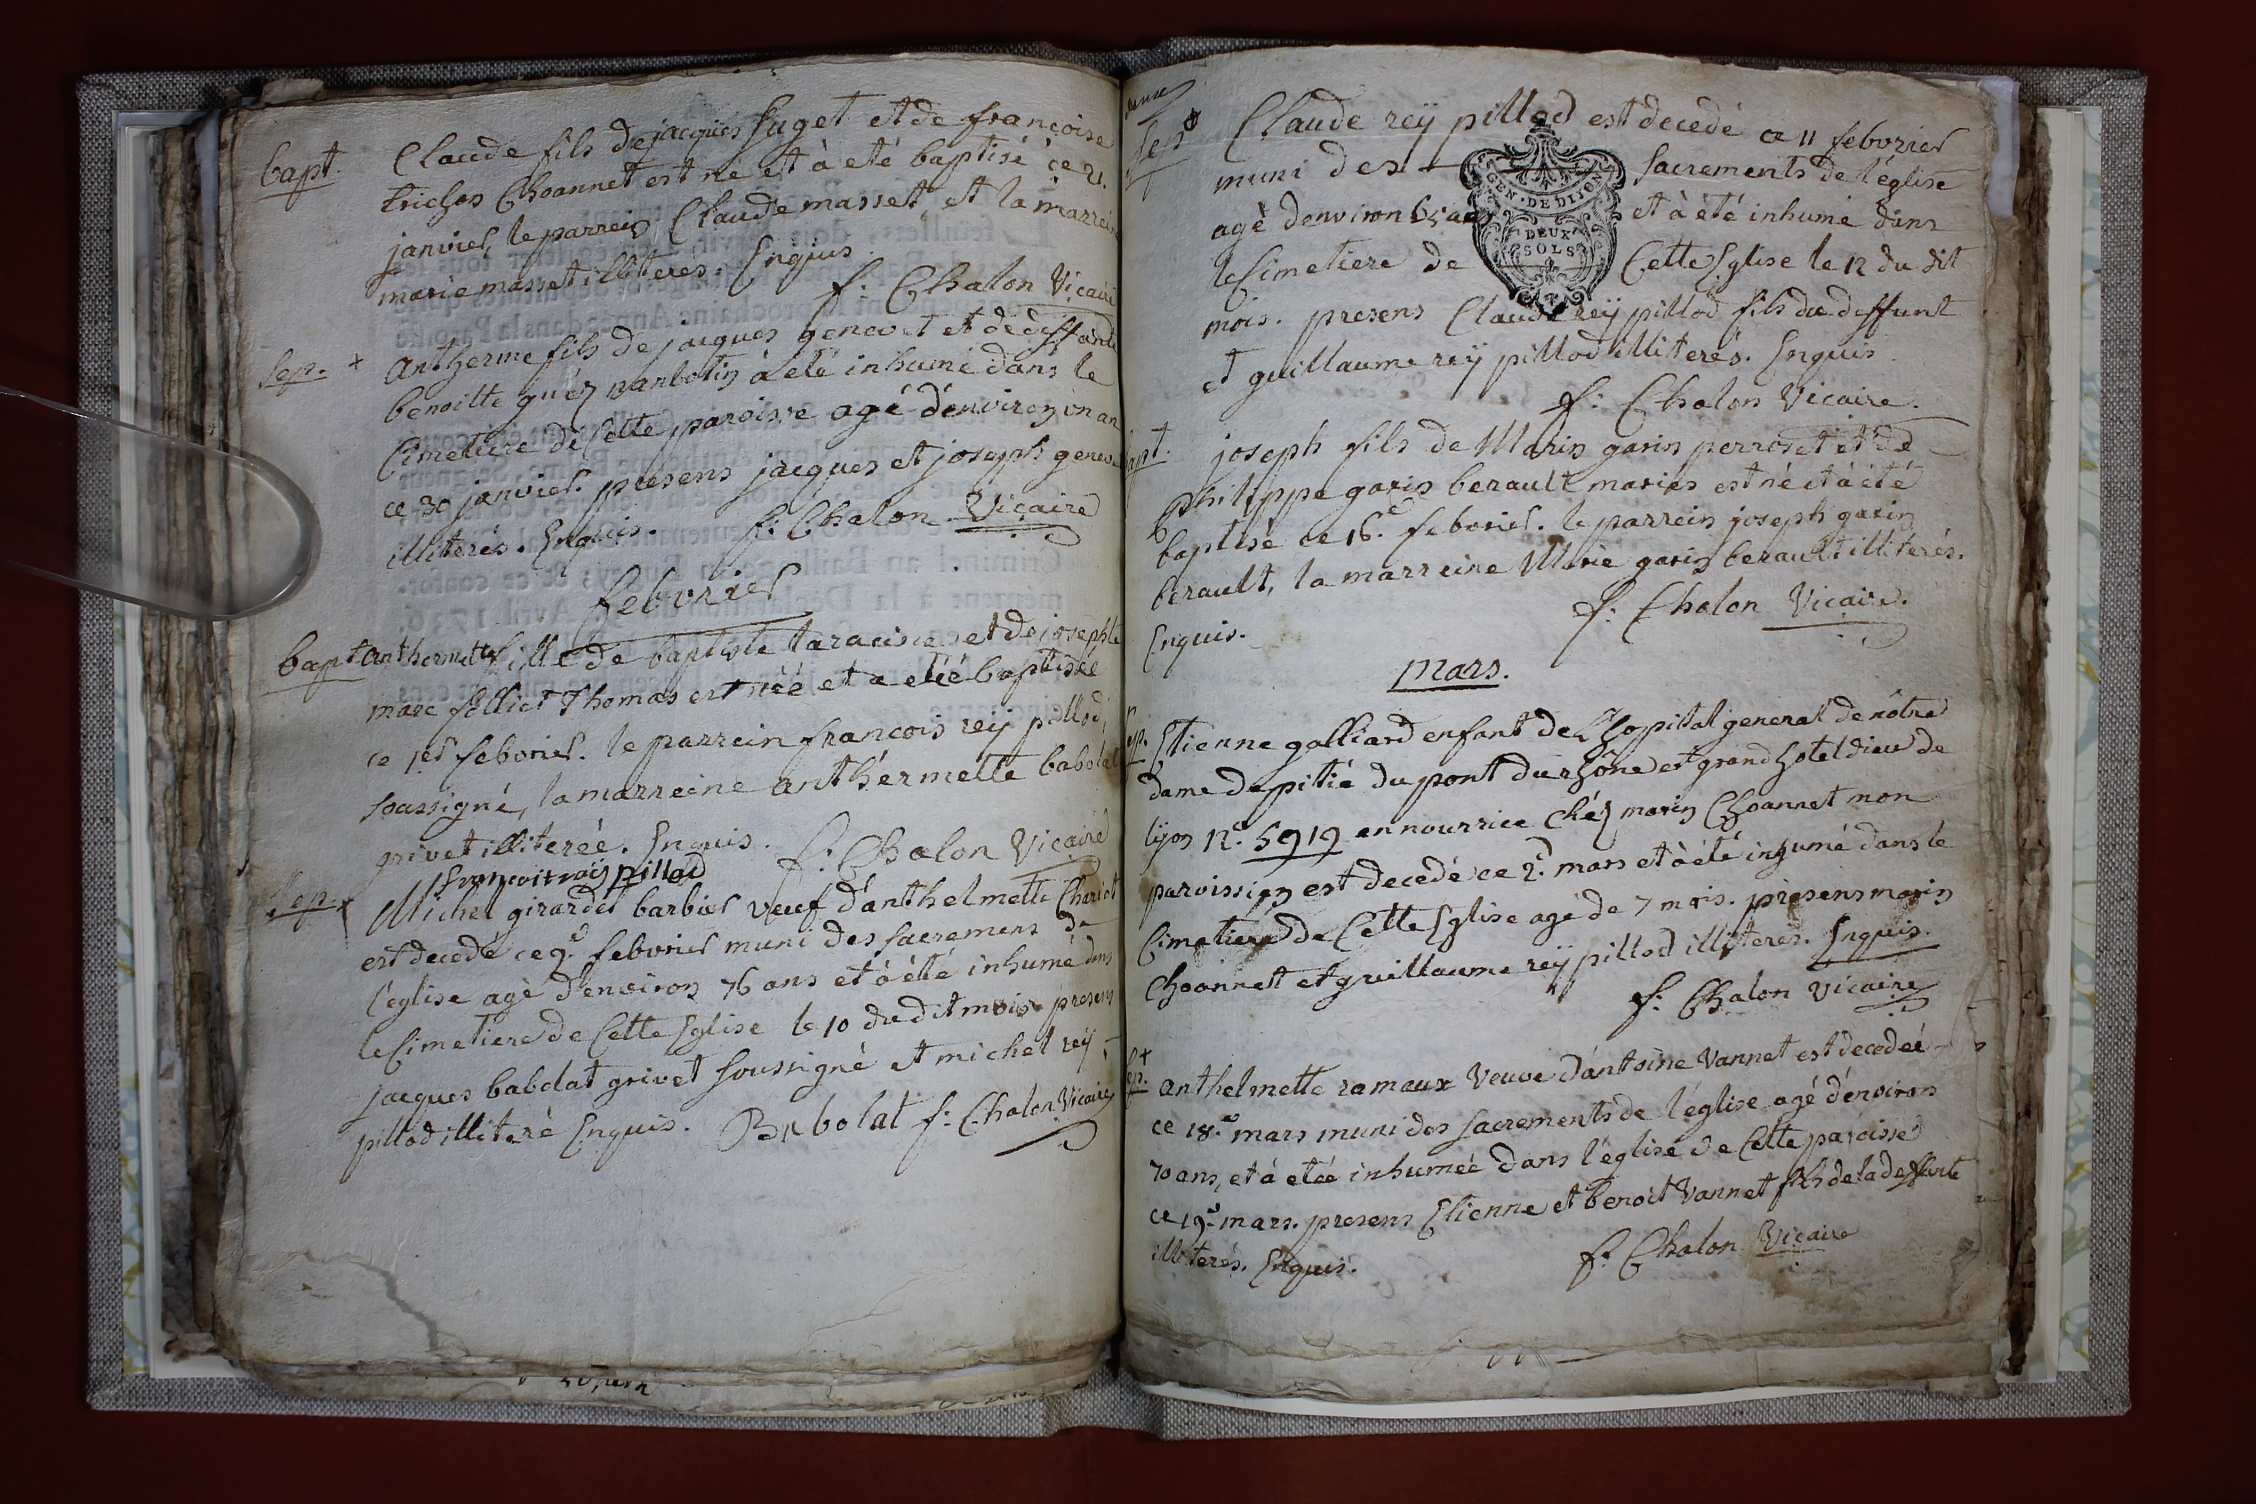 bapt. Claude fils de jacques suget et de françoise
trichon Choannet est né et à eté baptisé ce 21.
janvier, le parrein Claude masset et la marreine
marie masset illiterés. Enquis.
f: Chalon Vicaire
Sep. + Antherme fils de jacques genevet et de deffunte
benoitte guéz nanbotin à eté inhumé dans le
Cimetiere de Cette paroisse agé d'environ un an
ce 30 janvier. presens jacques et joseph genevet
illiterés. Enquis. f: Chalon Vicaire
febvrier
bapt anthermette fille de baptiste taravire et de josephte
marc follier Thomas est néé et a etéé baptiséé
ce 1er febvrier. le parrein francois reÿ pillod
soussigné, la marreine anthermette babolat
grivet illiteréé. Enquis. f: Chalon Vicaire
francoit reÿ pillod
Sep. + Michel girardet barbier veuf d'anthelmette Chariot
est decedé ce 9e. febvrier muni des sacremens de
l'eglise agé d'environ 76 ans et à été inhumé dans
le Cimetiere de Cette Eglise le 10 du dit mois presens
jacques babolat grivet soussigné et michel reÿ
pillod illiteré Enquis. Babolat f: Chalon Vicaire
Sep + Claude reÿ pillod est decedé ce 11 febvrier
muni des sacrements de l'église
agé d'environ 65 ans et à été inhumé dans
le Cimetiere de Cette Eglise le 12 du dit
mois. presens Claude reÿ pillod fils du deffunt
et guillaume reÿ pillod illiterés. Enquis.
GEN. DE DIJON
DEUX
SOLS
f: Chalon Vicaire.
bapt. joseph fils de Marin garin perroset et de
philippe garin berault mariés est né et à été
baptisé ce 16e. febvrier. le parrein joseph garin
berault, la marreine Marie garin berault illiterés.
Enquis. f: Chalon Vicaire.
mars.
Sep. Etienne galliard enfant de L'hopital general de nôtre
dame de pitié du pont du rhône et grand hotel dieu de
lÿon n°. 5919 en nourrice chéz marin Choannet mon
paroissien est decedé ce 2d. mars et à été inhumé dans le
Cimetiere de Cette Eglise agé de 7 mois. presens marin
Choannet et guillaume reÿ pillod illiterés. Enquis.
f: Chalon Vicaire
Sep. + anthelmette ramaux veuve d'antoine Vannet est decedéé
ce 18e mars muni des sacrements de l'église agé d'environ
70 ans, et à etéé inhuméé dans l'église de Cette paroisse
ce 19e mars. presens Etienne et benoit Vannet fils de la deffunte
illiterés. Enquis. f: Chalon Vicaire